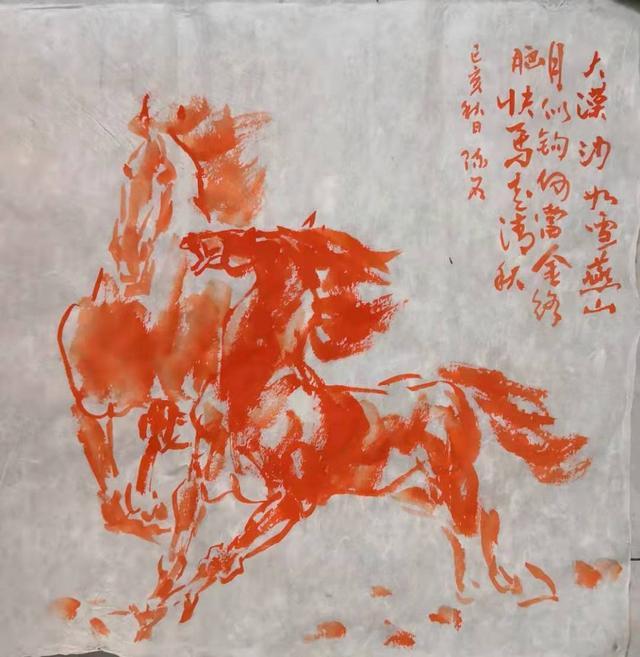 大漠沙如雪燕山
月似钩何當金络
脑快馬走清秋
己亥秋日